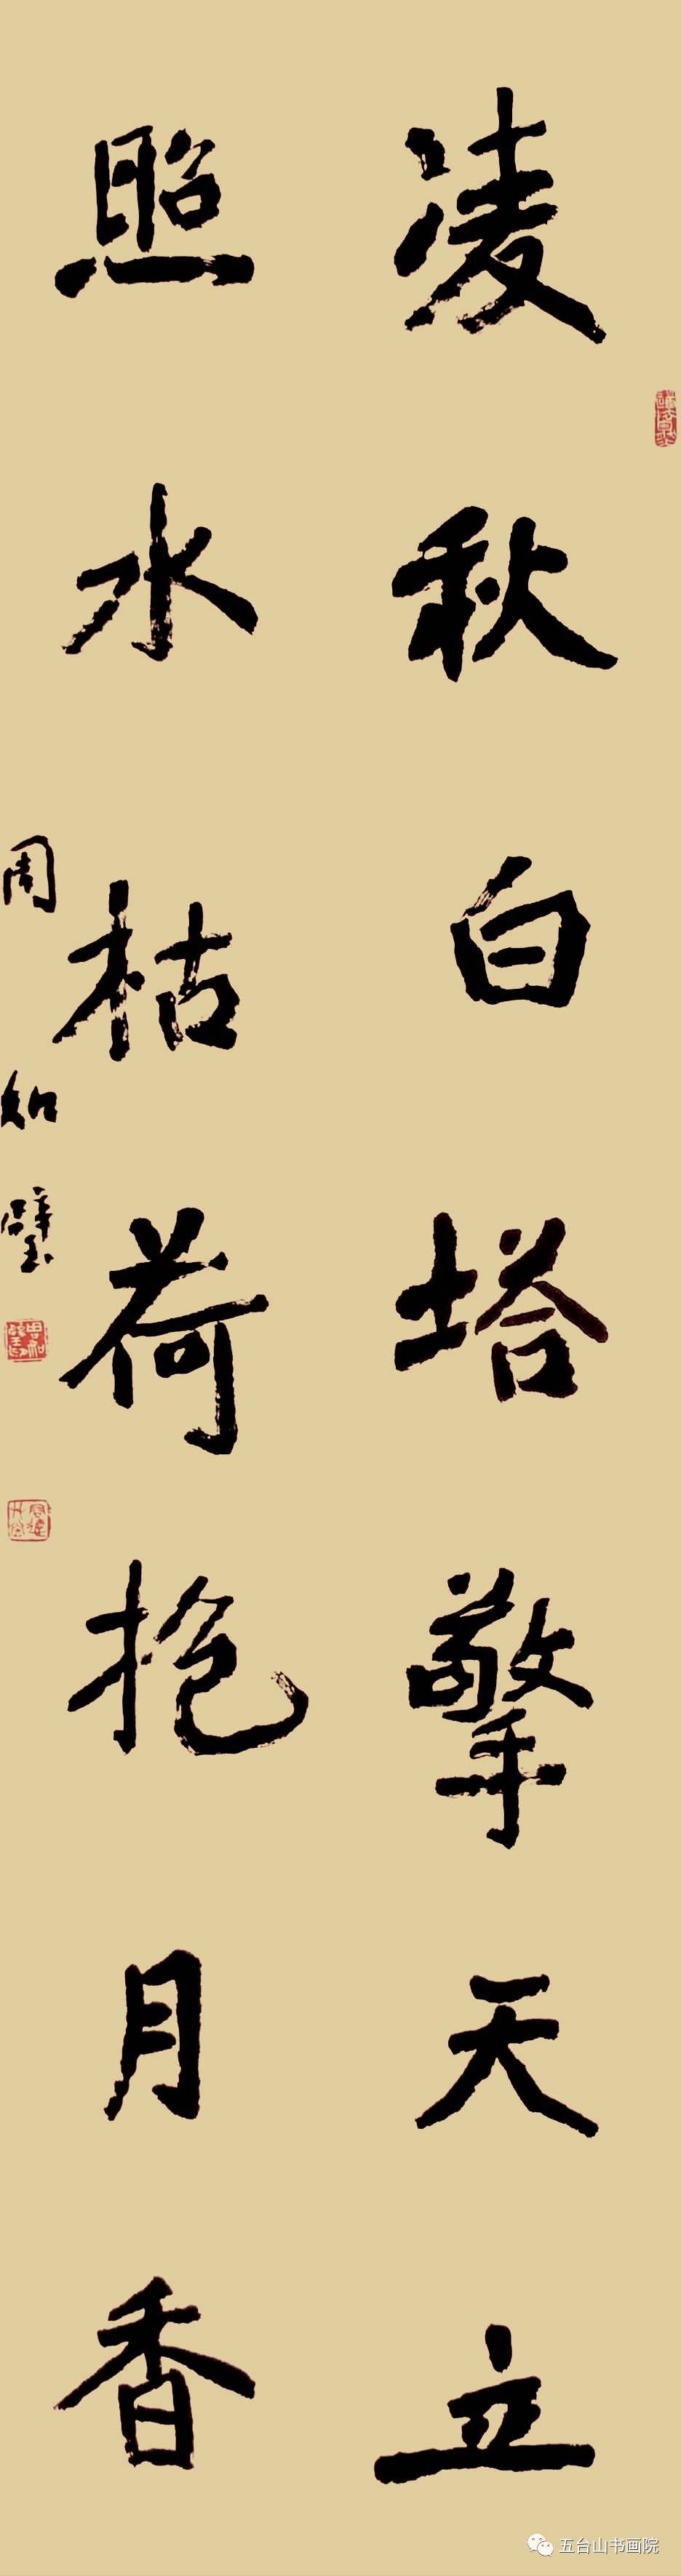 凌秋白塔擎天立
照水枯荷抱月香
周如璧
五台山书画院